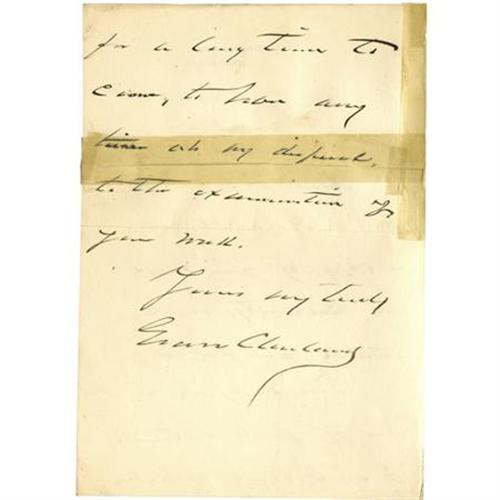 for a long time to
come, to have any
time at my disposal,
to the examination of
your work.
Yours very truly
Grover Cleveland